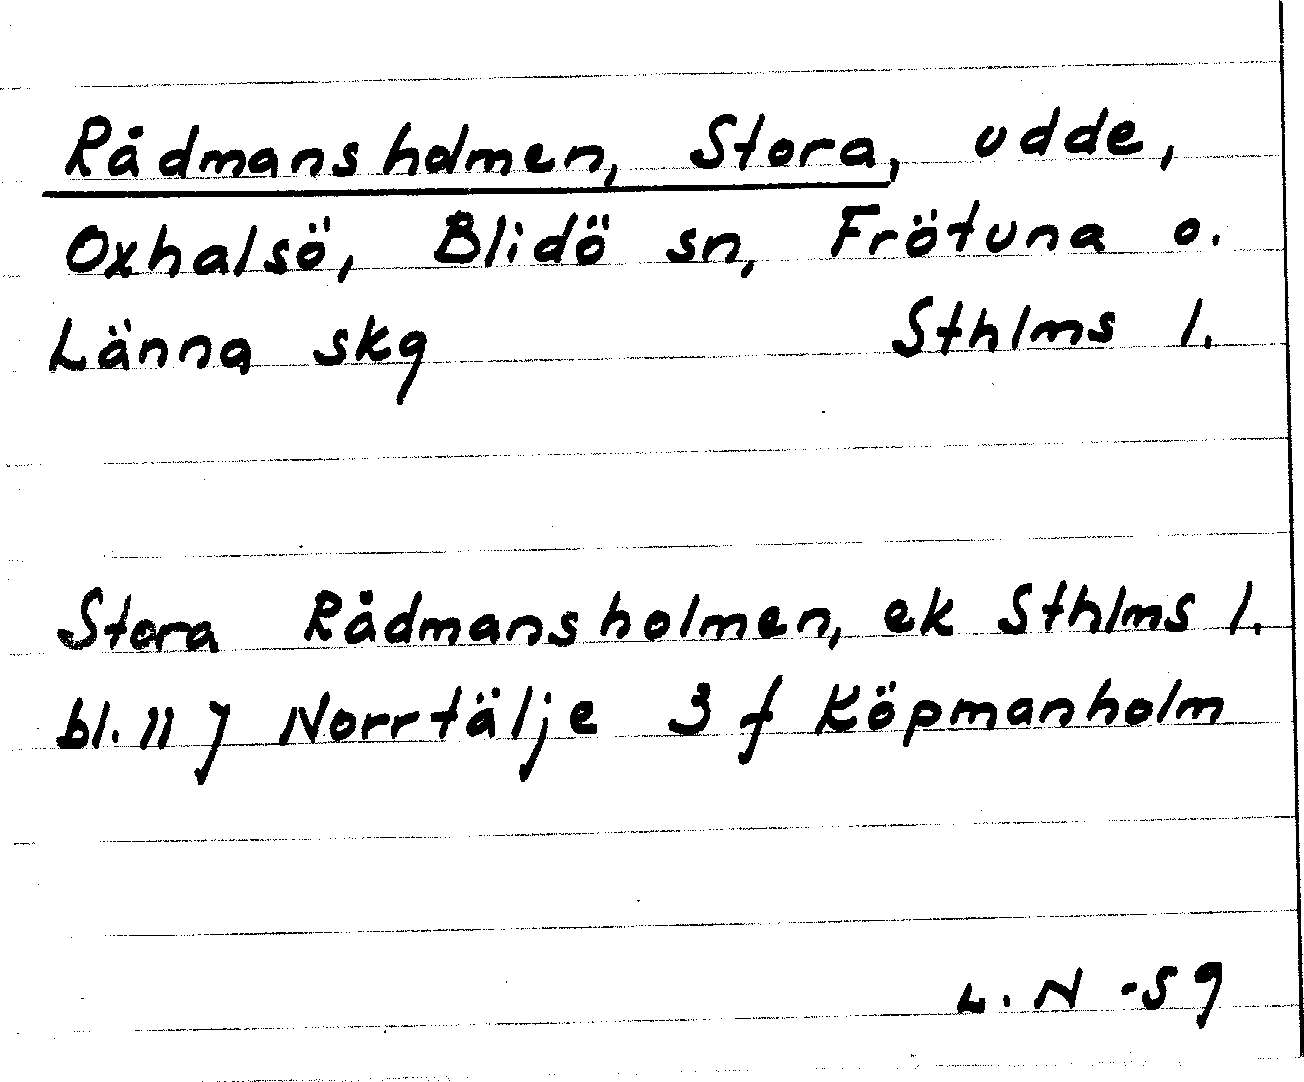 Rådmansholmen, Stora, udde,
Oxhalsö, Blidö sn, Frötuna o.
Länna skg Sthlms l.
Stora Rådmansholmen, ek Sthlms l.
bl. 117 Norrtälje 3 f Köpmanholm
L. N -59